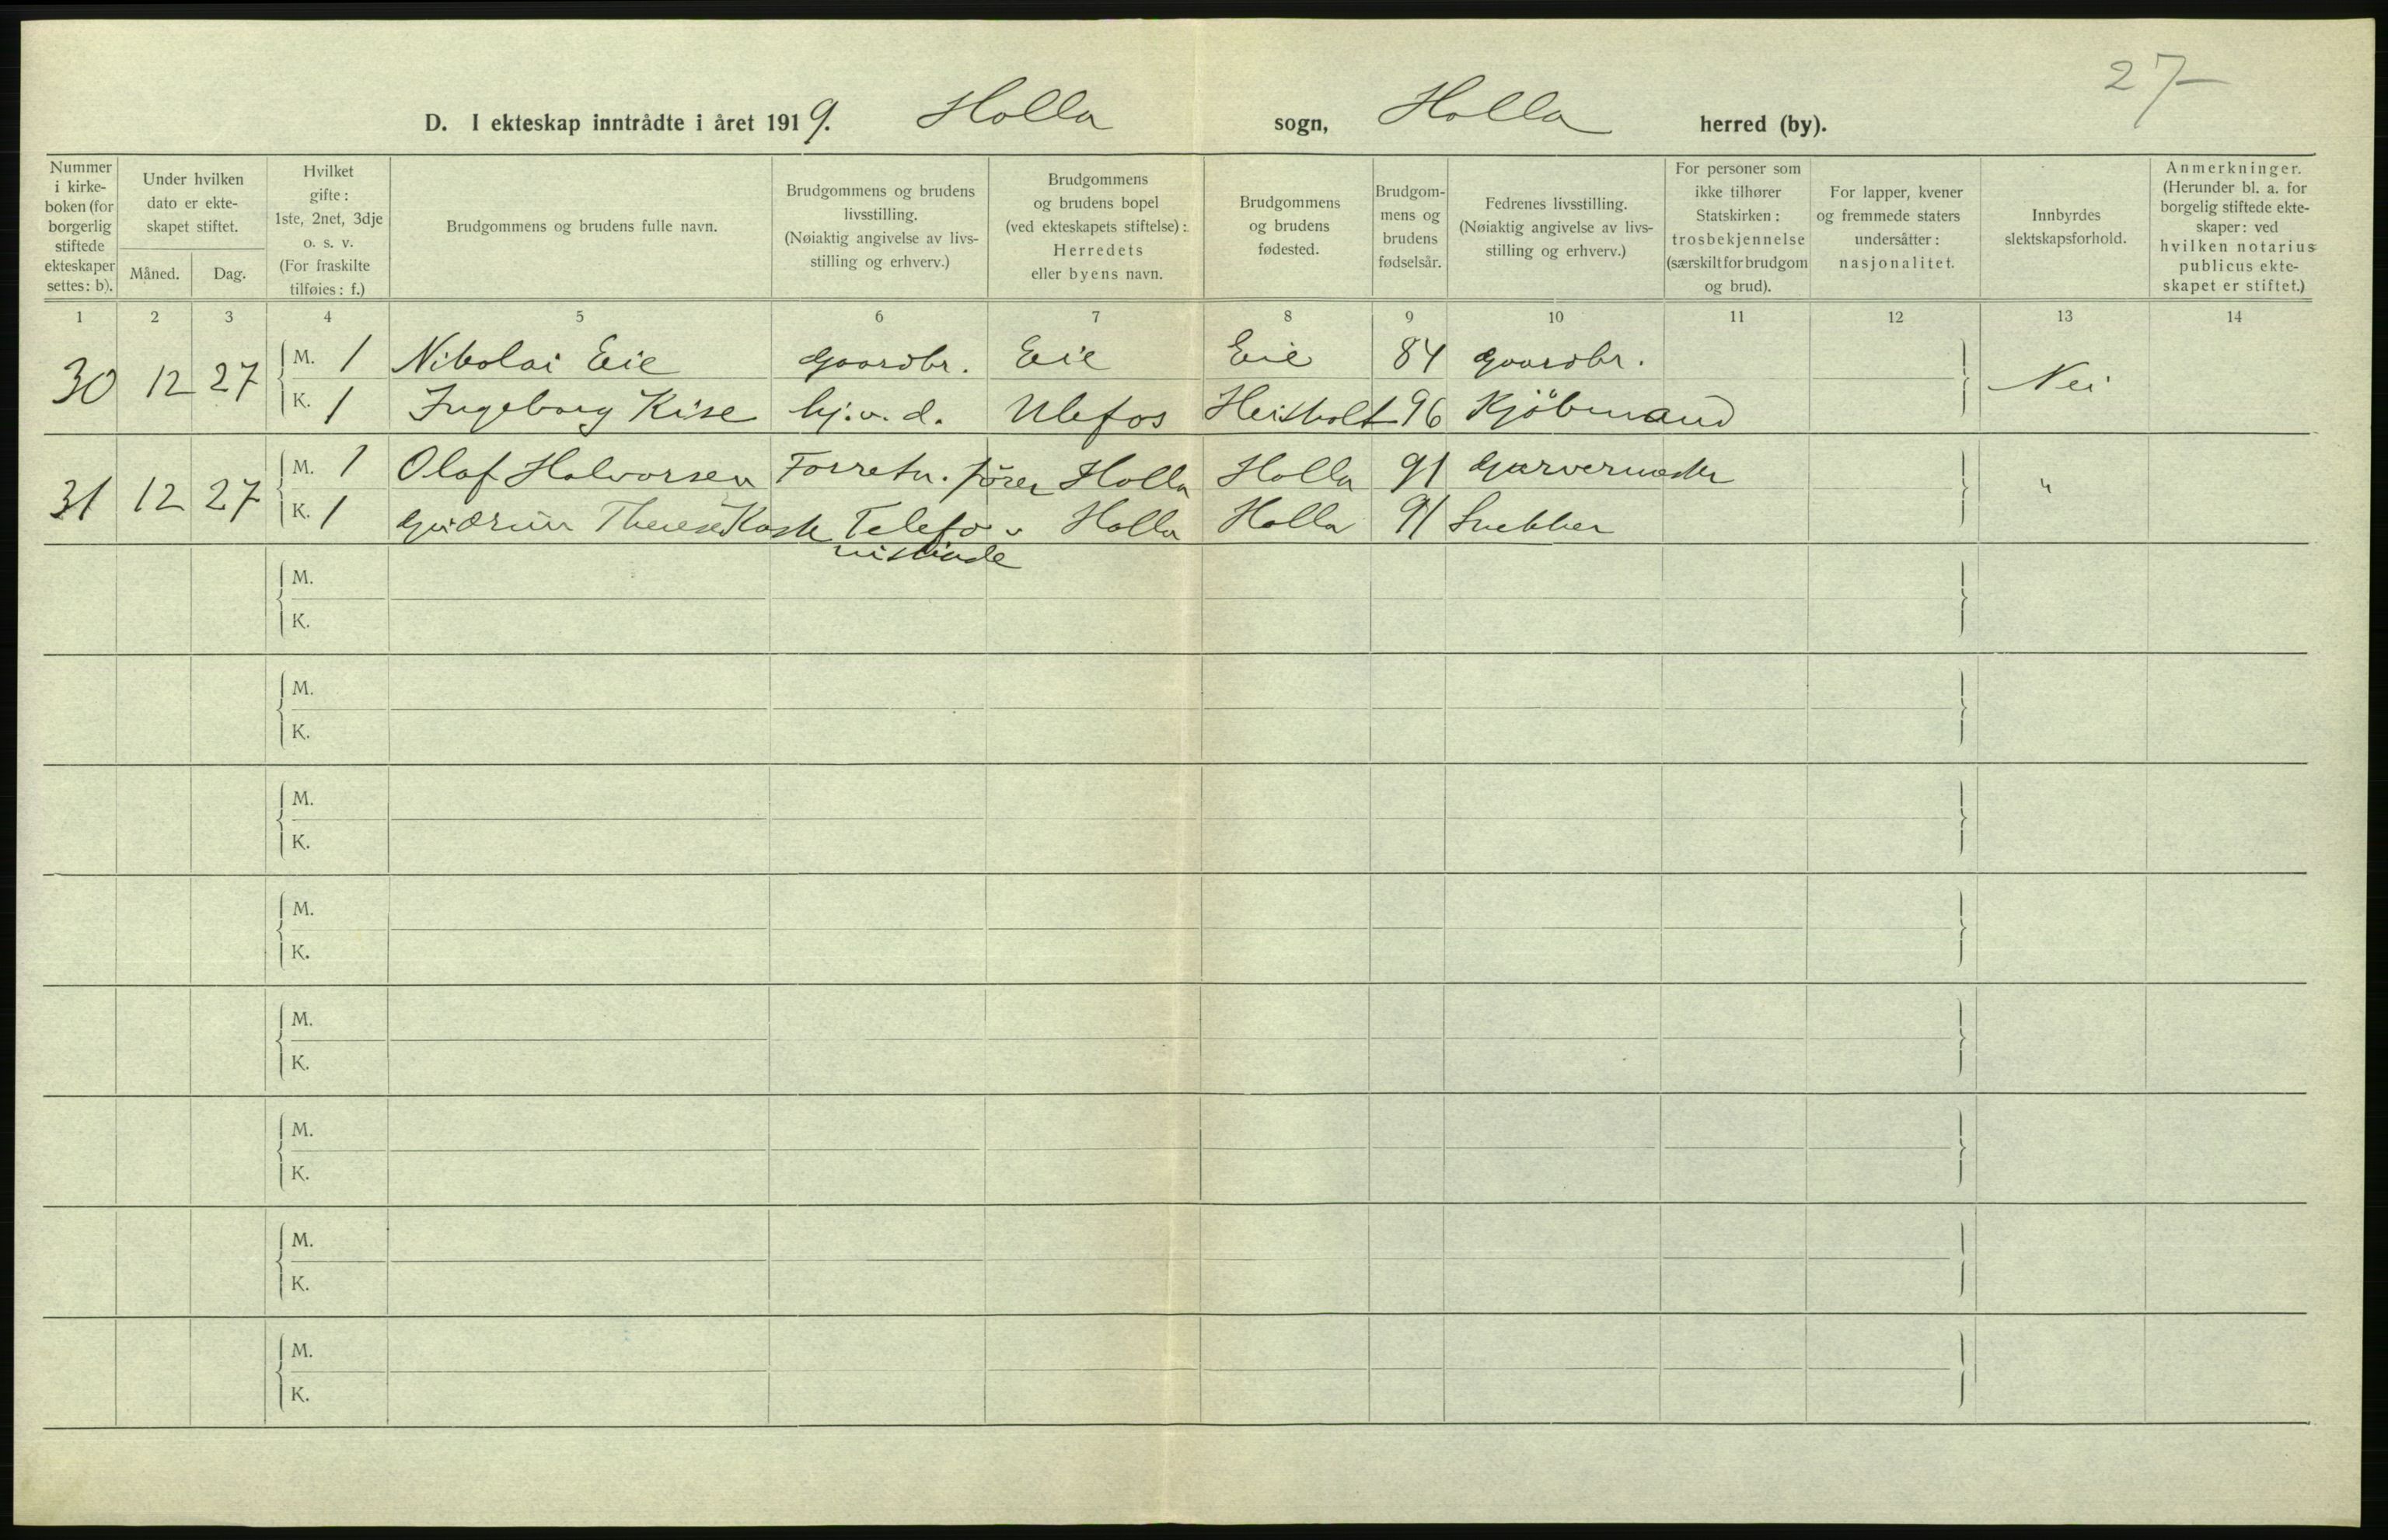 27
D. I ekteskap inntrådte i året 1919. Holla sogn, Holla herred (by).
Nummer i kirkeboken (for borgerlig stiftede ekteskaper settes: b).
Under hvilken dato er ekteskapet stiftet.
Måned.
Dag.
Hvilket gifte: 1ste, 2net, 3dje o. s. v. (For fraskilte tilføies: f.)
Brudgommens og brudens fulle navn.
Brudgommens og brudens livsstilling. (Nøiaktig angivelse av livsstilling og erhverv.)
Brudgommens og brudens bopel (ved ekteskapets stiftelse): Herredets eller byens navn.
Brudgommens og brudens fødested.
Brudgommens og brudens fødselsår.
Fedrenes livsstilling. (Nøiaktig angivelse av livsstilling og erhverv.)
For personer som ikke tilhører Statskirken: trosbekjennelse (særskilt for brudgom og brud).
For lapper, kvener og fremmede staters undersåtter: nasjonalitet.
Innbyrdes slektskapsforhold.
Anmerkninger. (Herunder bl. a. for borgelig stiftede ekteskaper: ved hvilken notarius publicus ekteskapet er stiftet.)
1 2 3 4 5 6 7 8 9 10 11 12 13 14
30 12 27 M. 1 Nikolai Eie Gaardbr. Eie Eie 84 Gaardbr. Nei
K. 1 Ingeborg Kise hj.v.d. Ulefos Heisholt 96 Kjöbmand
31 12 27 M. 1 Olaf Halvorsen Forretn. förer Holla Holla 91 Garvermester "
K. 1 Gudrun Therese Kaste Telefo- Holla Holla 91 Snekker
nistinde
M.
K.
M.
K.
M.
K.
M.
K.
M.
K.
M.
K.
M.
K.
M.
K.